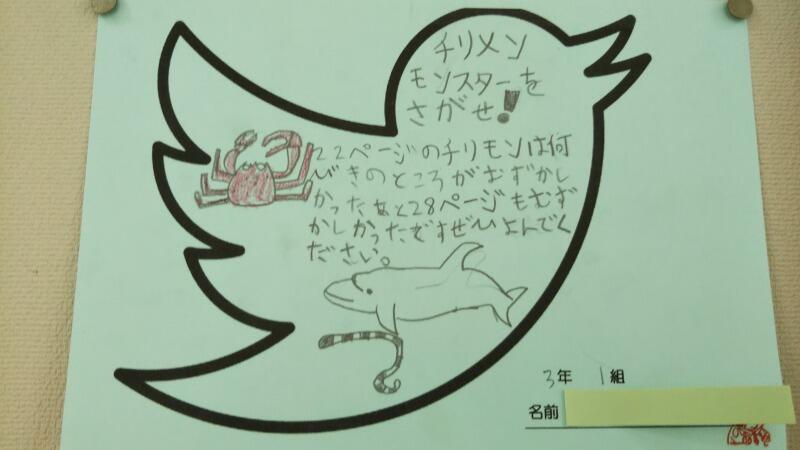 チリメン
モンスターを
さがせ!
22ページのチリモンは何
びきのところがむずかし
かったあと28ページもむず
かしかったですぜひよんでく
ださい。
3年 1組
名前